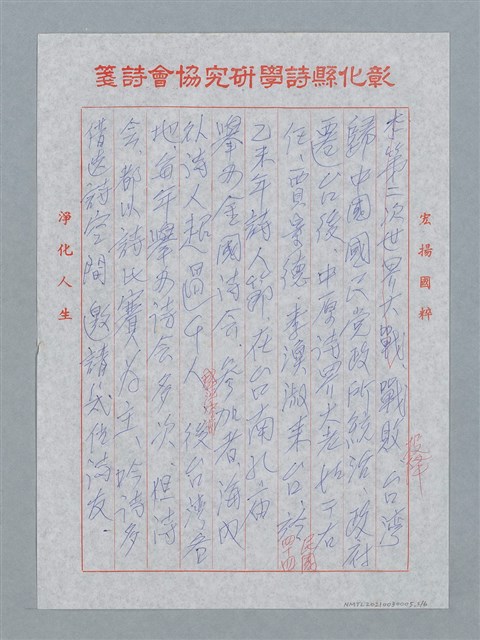 彰化縣詩學研究協會詩箋
宏揚國粹
本第二次世界大戰、戰敗 台灣
歸中國國民党政所統治、政府
遷台後 中原詩界大老 于右
任、賈景德、李漁叔來台、於
民國四十四
乙未年詩人節 在台南孔庙
舉办全國詩会、參加者、海内
外詩人超過千人 後台灣各
地、每年舉办詩会多次、但詩
会、都以詩比賽为主、吟詩多
借吃詩空間 邀請 詩友、
淨化人生
NMTL20210080005_1/6